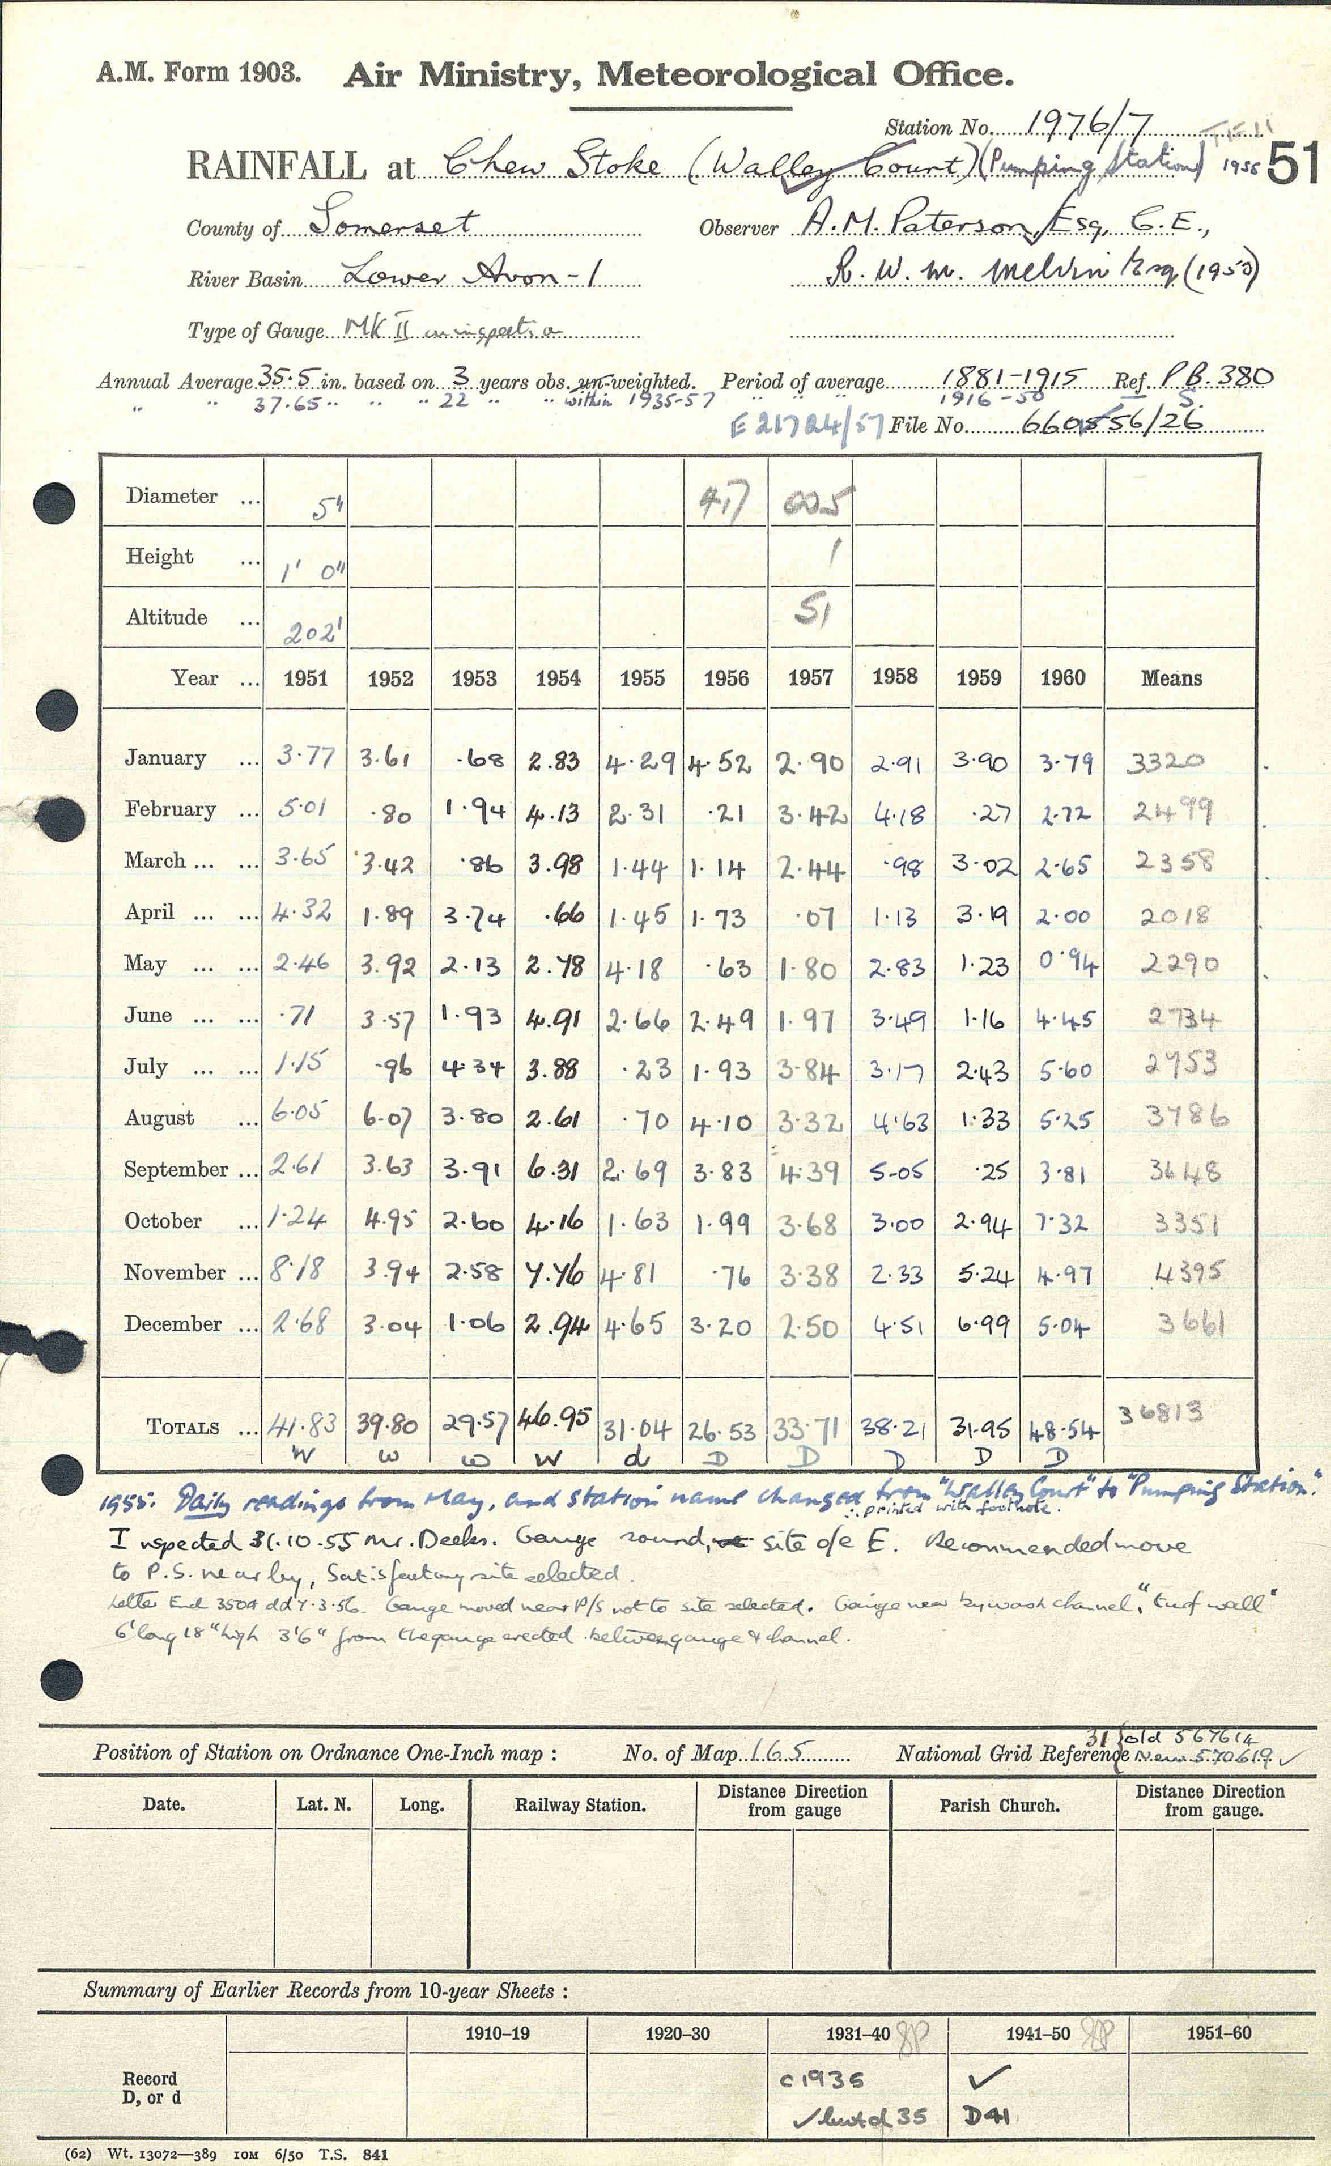 A.M. Form 1903. Air Ministry, Meteorological Office.
Station No. 1976/7
RAINFALL at Chew Stoke (Walley Court) (Pumping Station) 1956 51
County of Somerset Observer A.M. Paterson, Esq, C.E.,
River Basin Lower Avon-1 R. W. M. Melvin Esq (1953)
Type of Gauge MK II on inspection
Annual Average 35.5 in. based on 3 years obs. un-weighted. Period of average 1881-1915 Ref. P.B. 380
" " 37.65 " " " 22 " " within 1935-57 " " " 1916-50 S.
E 21724/57 File No. 660556/26
Diameter ... 5" 417 005
Height ... 1' 0" 1
Altitude ... 202' 51
Year ... 1951 1952 1953 1954 1955 1956 1957 1958 1959 1960 Means
January ... 3.77 3.61 .68 2.83 4.29 4.52 2.90 2.91 3.90 3.79 3320
February ... 5.01 .80 1.94 4.13 2.31 .21 3.42 4.18 .27 2.72 2499
March ... ... 3.65 3.42 .86 3.98 1.44 1.14 2.44 .98 3.02 2.65 2358
April ... ... 4.32 1.89 3.74 .66 1.45 1.73 .07 1.13 3.19 2.00 2018
May ... ... 2.46 3.92 2.13 2.78 4.18 .63 1.80 2.83 1.23 0.94 2290
June ... ... .71 3.57 1.93 4.91 2.66 2.49 1.97 3.49 1.16 4.45 2734
July ... ... 1.15 .96 4.34 3.88 .23 1.93 3.84 3.17 2.43 5.60 2753
August ... 6.05 6.07 3.80 2.61 .70 4.10 3.32 4.63 1.33 5.25 3786
September ... 2.61 3.63 3.91 6.31 2.69 3.83 4.39 5.05 .25 3.81 3648
October ... 1.24 4.95 2.60 4.16 1.63 1.99 3.68 3.00 2.94 7.32 3351
November ... 8.18 3.94 2.58 7.76 4.81 .76 3.38 2.33 5.24 4.97 4395
December ... 2.68 3.04 1.06 2.94 4.65 3.20 2.50 4.51 6.99 5.04 3661
TOTALS ... 41.83 39.80 29.57 46.95 31.04 26.53 33.71 38.21 31.95 48.54 36813
W W W W d D D D D D
1955: Daily readings from May, and station name changed from "Walley Court" to "Pumping Station".
∴ printed with footnote.
Inspected 31.10.55 Mr. Deeks. Gauge sound, site o/e E. Recommended move
to P.S. nearby, Satisfactory site selected.
Letter End 350A dd 7.3.56. Gauge moved near P/S not to site selected. Gauge near bywash channel, "turf wall"
6' long 18" high 3'6" from the gauge erected between gauge & channel.
Position of Station on Ordnance One-Inch map : No. of Map 165 National Grid Reference 31 { old 567614
New 570619 ✓
Date. Lat. N. Long. Railway Station. Distance from gauge Direction Parish Church. Distance from gauge. Direction
Summary of Earlier Records from 10-year Sheets :
1910–19 1920–30 1931–40 1941–50 1951–60
Record c 1935 ✓
D, or d ✓ but d 35 D41
(62) Wt. 13072—389 10M 6/50 T.S. 841